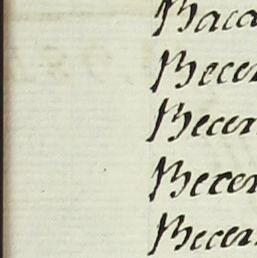 Baca
Becer
Becer
Becer
Becer